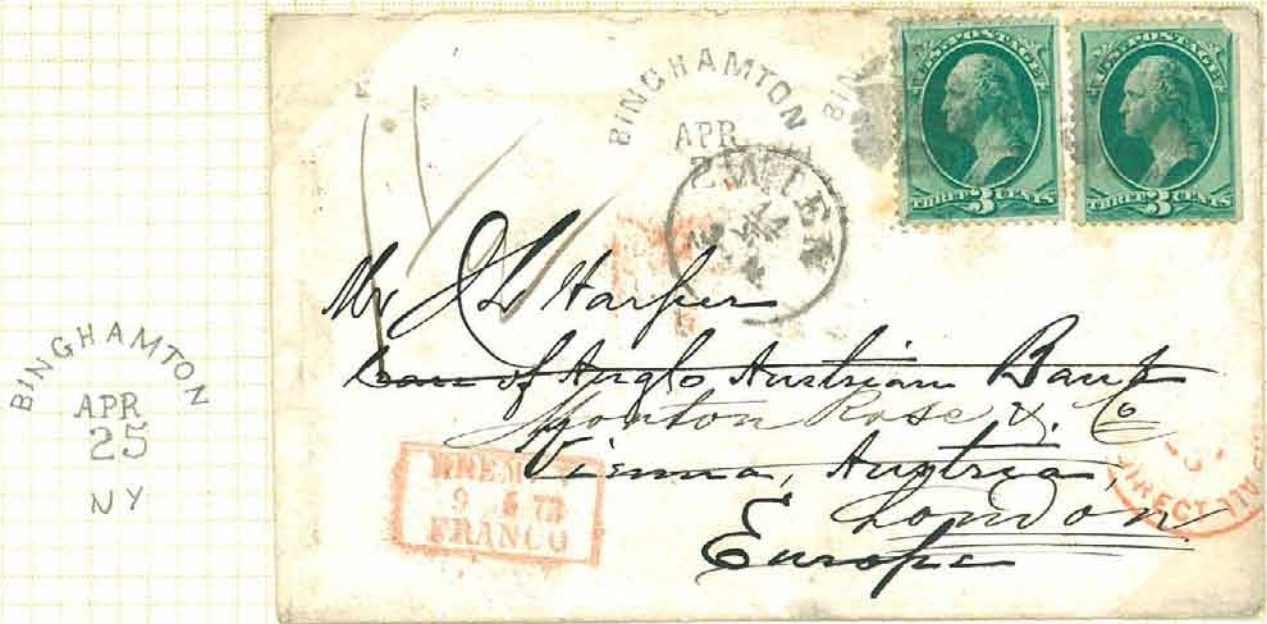 BINGHAMTON
APR
25
NY
BINGHAMTON
APR
2
WIEN
U.S. POSTAGE
THREE 3 CENTS
U.S. POSTAGE
THREE 3 CENTS
Mr J L Harper
Care of Anglo Austrian Bank
Morton Rose & Co
Vienna, Austria,
London
Europe
BREMEN
9 5 73
FRANCO
DIRECT